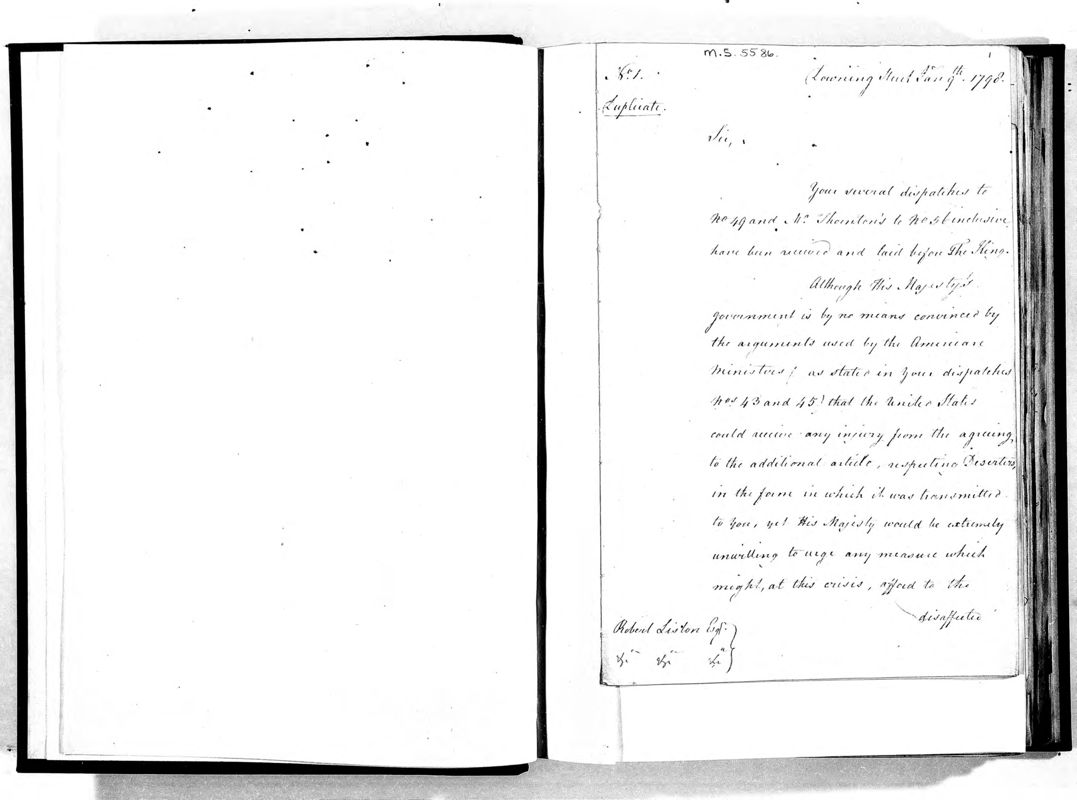 M.S. 5586.
1
No. 1.
Downing Street Jany. 9th. 1798.
Duplicate.
Sir,
Your several dispatches to
No 49 and Mr. Thornton's to No 56 inclusive
have been received and laid before The King.
Although His Majesty's
government is by no means convinced by
the arguments used by the American
Ministers (as stated in Your dispatches
Nos 43 and 45) that the United States
could receive any injury from the agreeing,
to the additional article, respecting Deserters,
in the form in which it was transmitted
to You, yet His Majesty would be extremely
unwilling to urge any measure which
might, at this crisis, afford to the
disaffected
Robert Liston Esqr.
&c &c &c